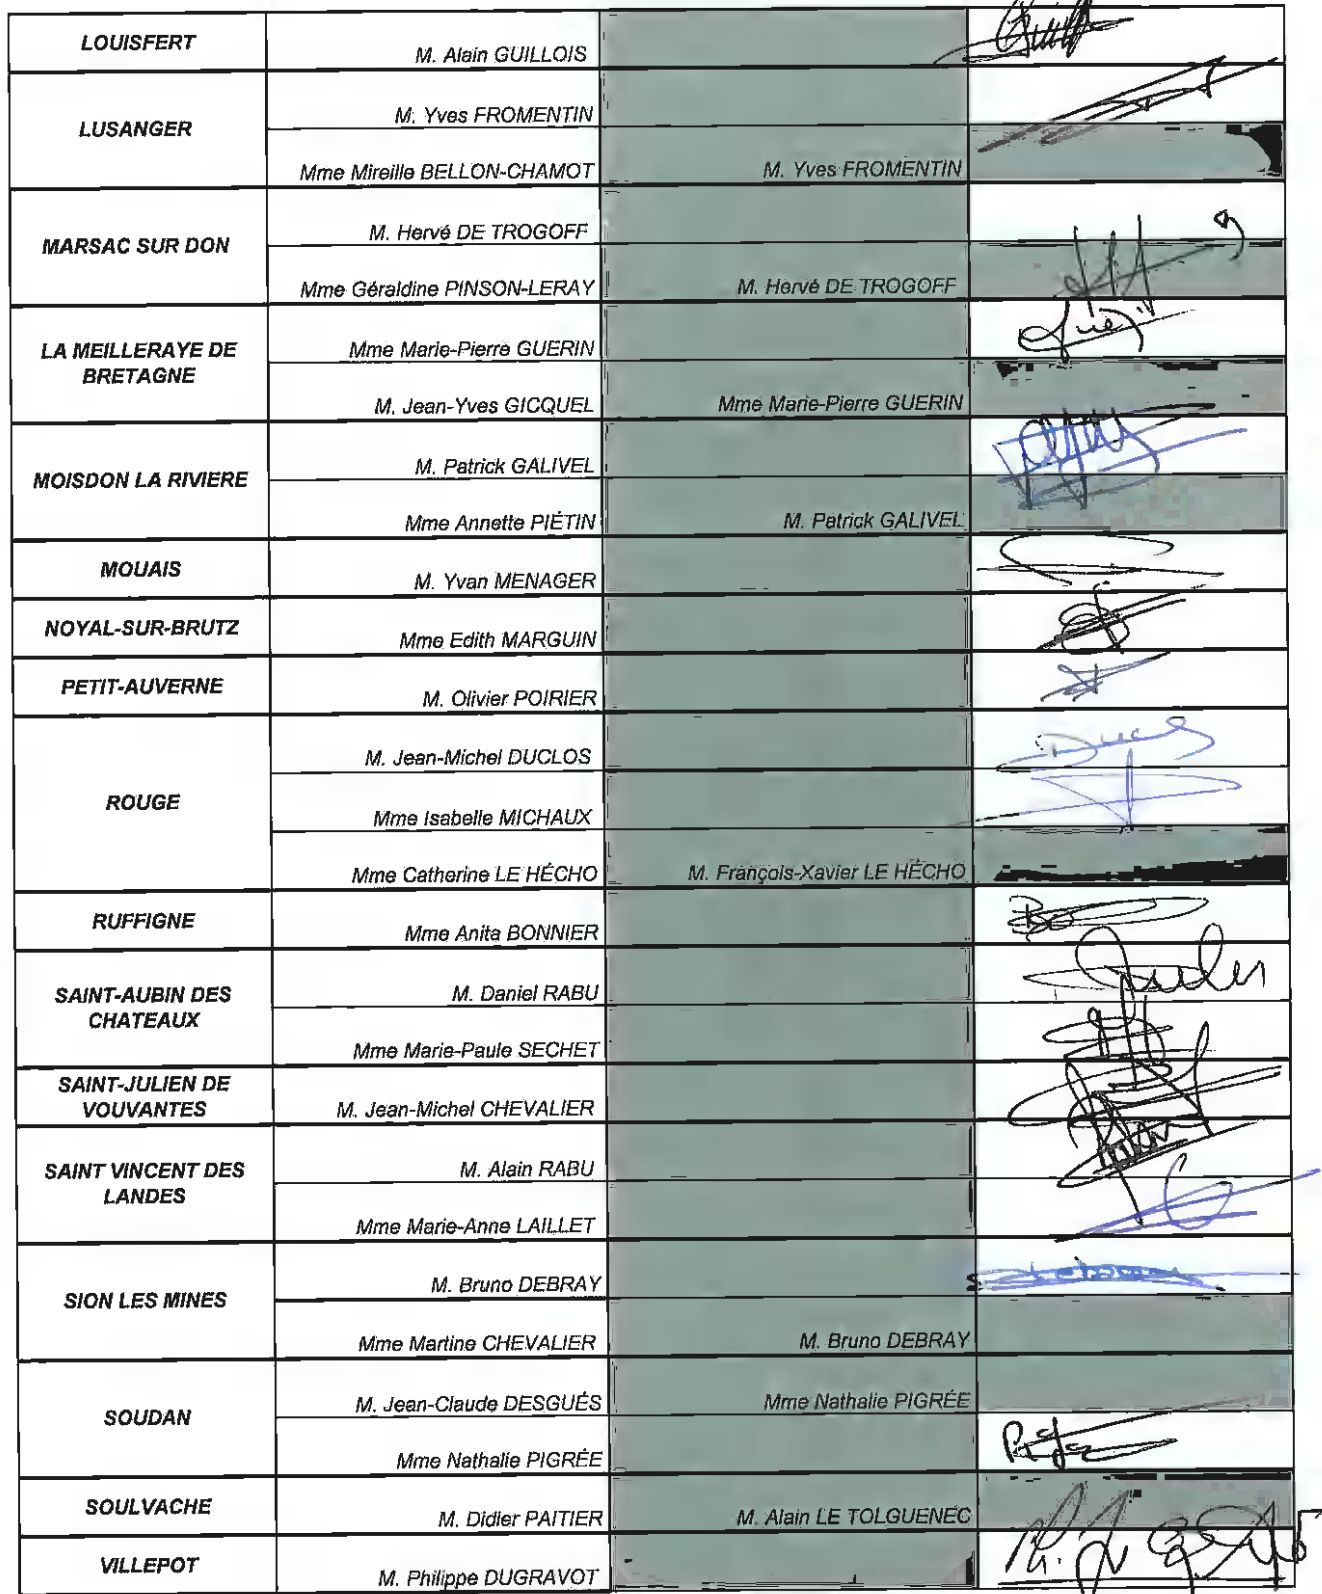 LOUISFERT M. Alain GUILLOIS
LUSANGER
M. Yves FROMENTIN
Mme Mireille BELLON-CHAMOT M. Yves FROMENTIN
MARSAC SUR DON
M. Hervé DE TROGOFF
Mme Géraldine PINSON-LERAY M. Hervé DE TROGOFF
LA MEILLERAYE DE
BRETAGNE
Mme Marie-Pierre GUERIN
M. Jean-Yves GICQUEL Mme Marie-Pierre GUERIN
MOISDON LA RIVIERE
M. Patrick GALIVEL
Mme Annette PIÉTIN M. Patrick GALIVEL
MOUAIS M. Yvan MENAGER
NOYAL-SUR-BRUTZ Mme Edith MARGUIN
PETIT-AUVERNE M. Olivier POIRIER
ROUGE
M. Jean-Michel DUCLOS
Mme Isabelle MICHAUX
Mme Catherine LE HÉCHO M. François-Xavier LE HÉCHO
RUFFIGNE Mme Anita BONNIER
SAINT-AUBIN DES
CHATEAUX
M. Daniel RABU
Mme Marie-Paule SECHET
SAINT-JULIEN DE
VOUVANTES
M. Jean-Michel CHEVALIER
SAINT VINCENT DES
LANDES
M. Alain RABU
Mme Marie-Anne LAILLET
SION LES MINES
M. Bruno DEBRAY
Mme Martine CHEVALIER M. Bruno DEBRAY
SOUDAN
M. Jean-Claude DESGUÉS Mme Nathalie PIGRÉE
Mme Nathalie PIGRÉE
SOULVACHE M. Didier PAITIER M. Alain LE TOLGUENEC
VILLEPOT M. Philippe DUGRAVOT